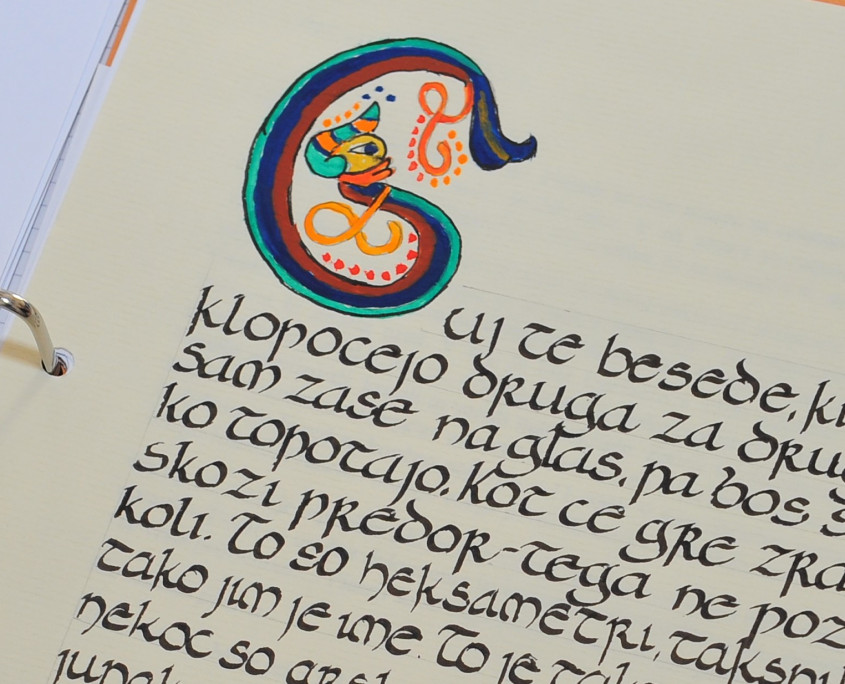 Cuj te besede, ki
klopocejo druga za
sam zase na glas, pa bos
ko topotajo, kot ce gre
skozi predor-tega ne
koli. To so heksametri,
tako jim je ime. To je
nekoc so